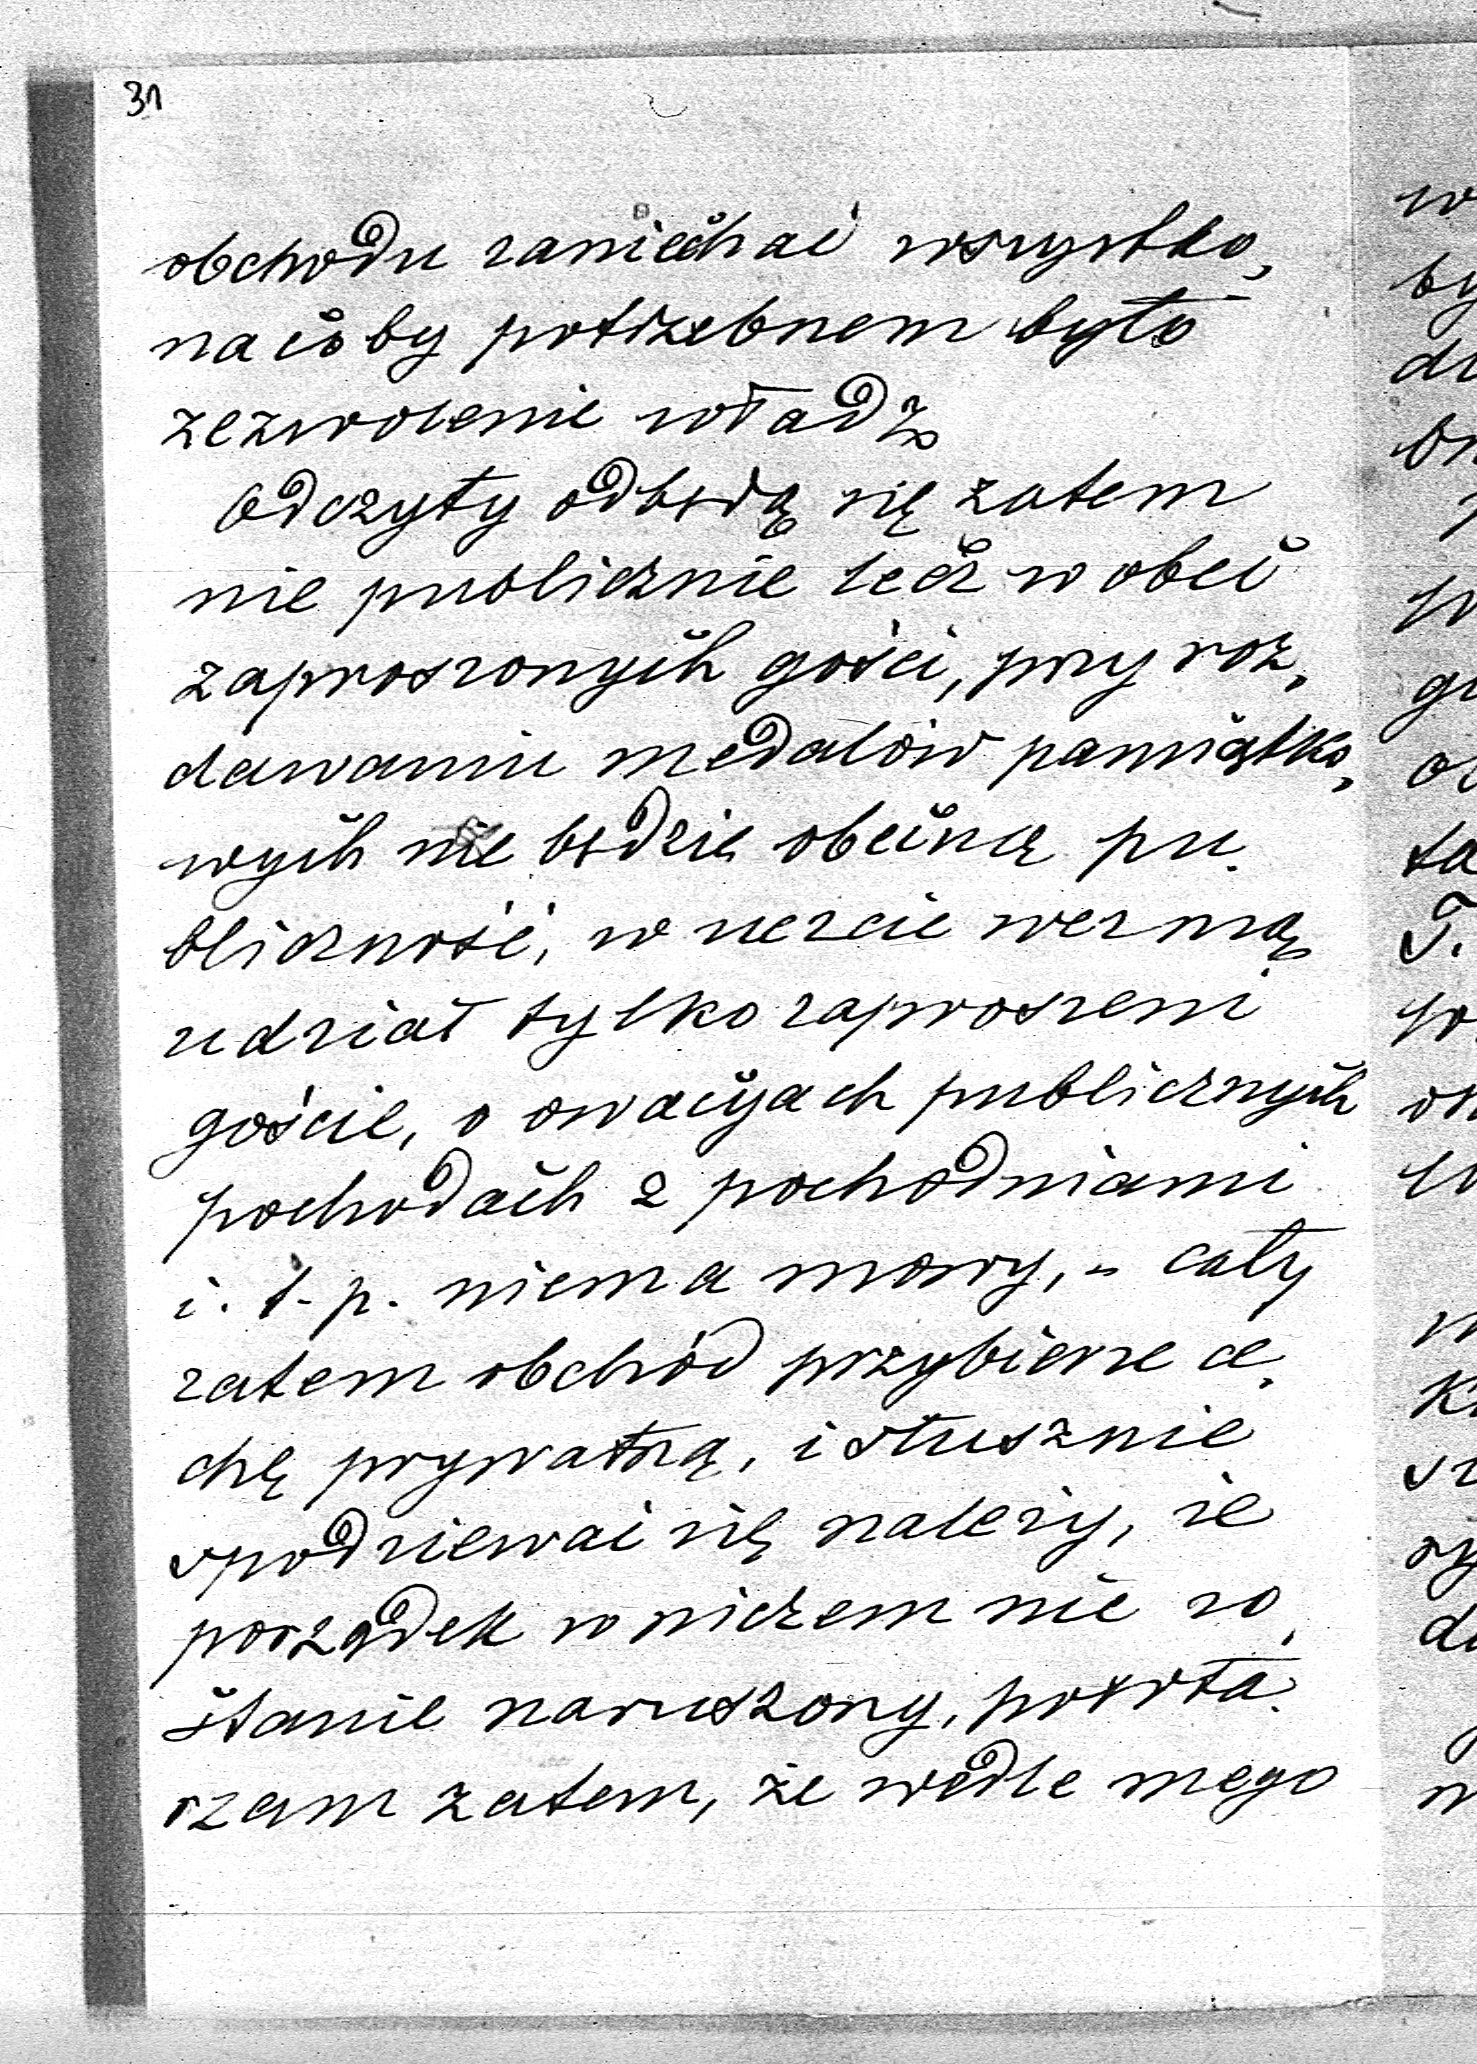 31
obchodu zaniechać wszystko,
na coby potrzebnem było
zezwolenie władz.
Odczyty odbędą się zatem
nie publicznie lecz wobec
zaproszonych gości, przy roz,
dawaniu medalów pamiątko,
wych nie będzie obecną pu,
bliczność, w uczcie wezmą
udział tylko zaproszeni
goście, o owacyach publicznych
pochodach z pochodniami
i. t. p. niema mowy, - cały
zatem obchód przybierze ce,
chę prywatną, i słusznie
spodziewać się należy, że
porządek w niczem nie zo,
stanie naruszony, powta,
rzam zatem, że wedle mego